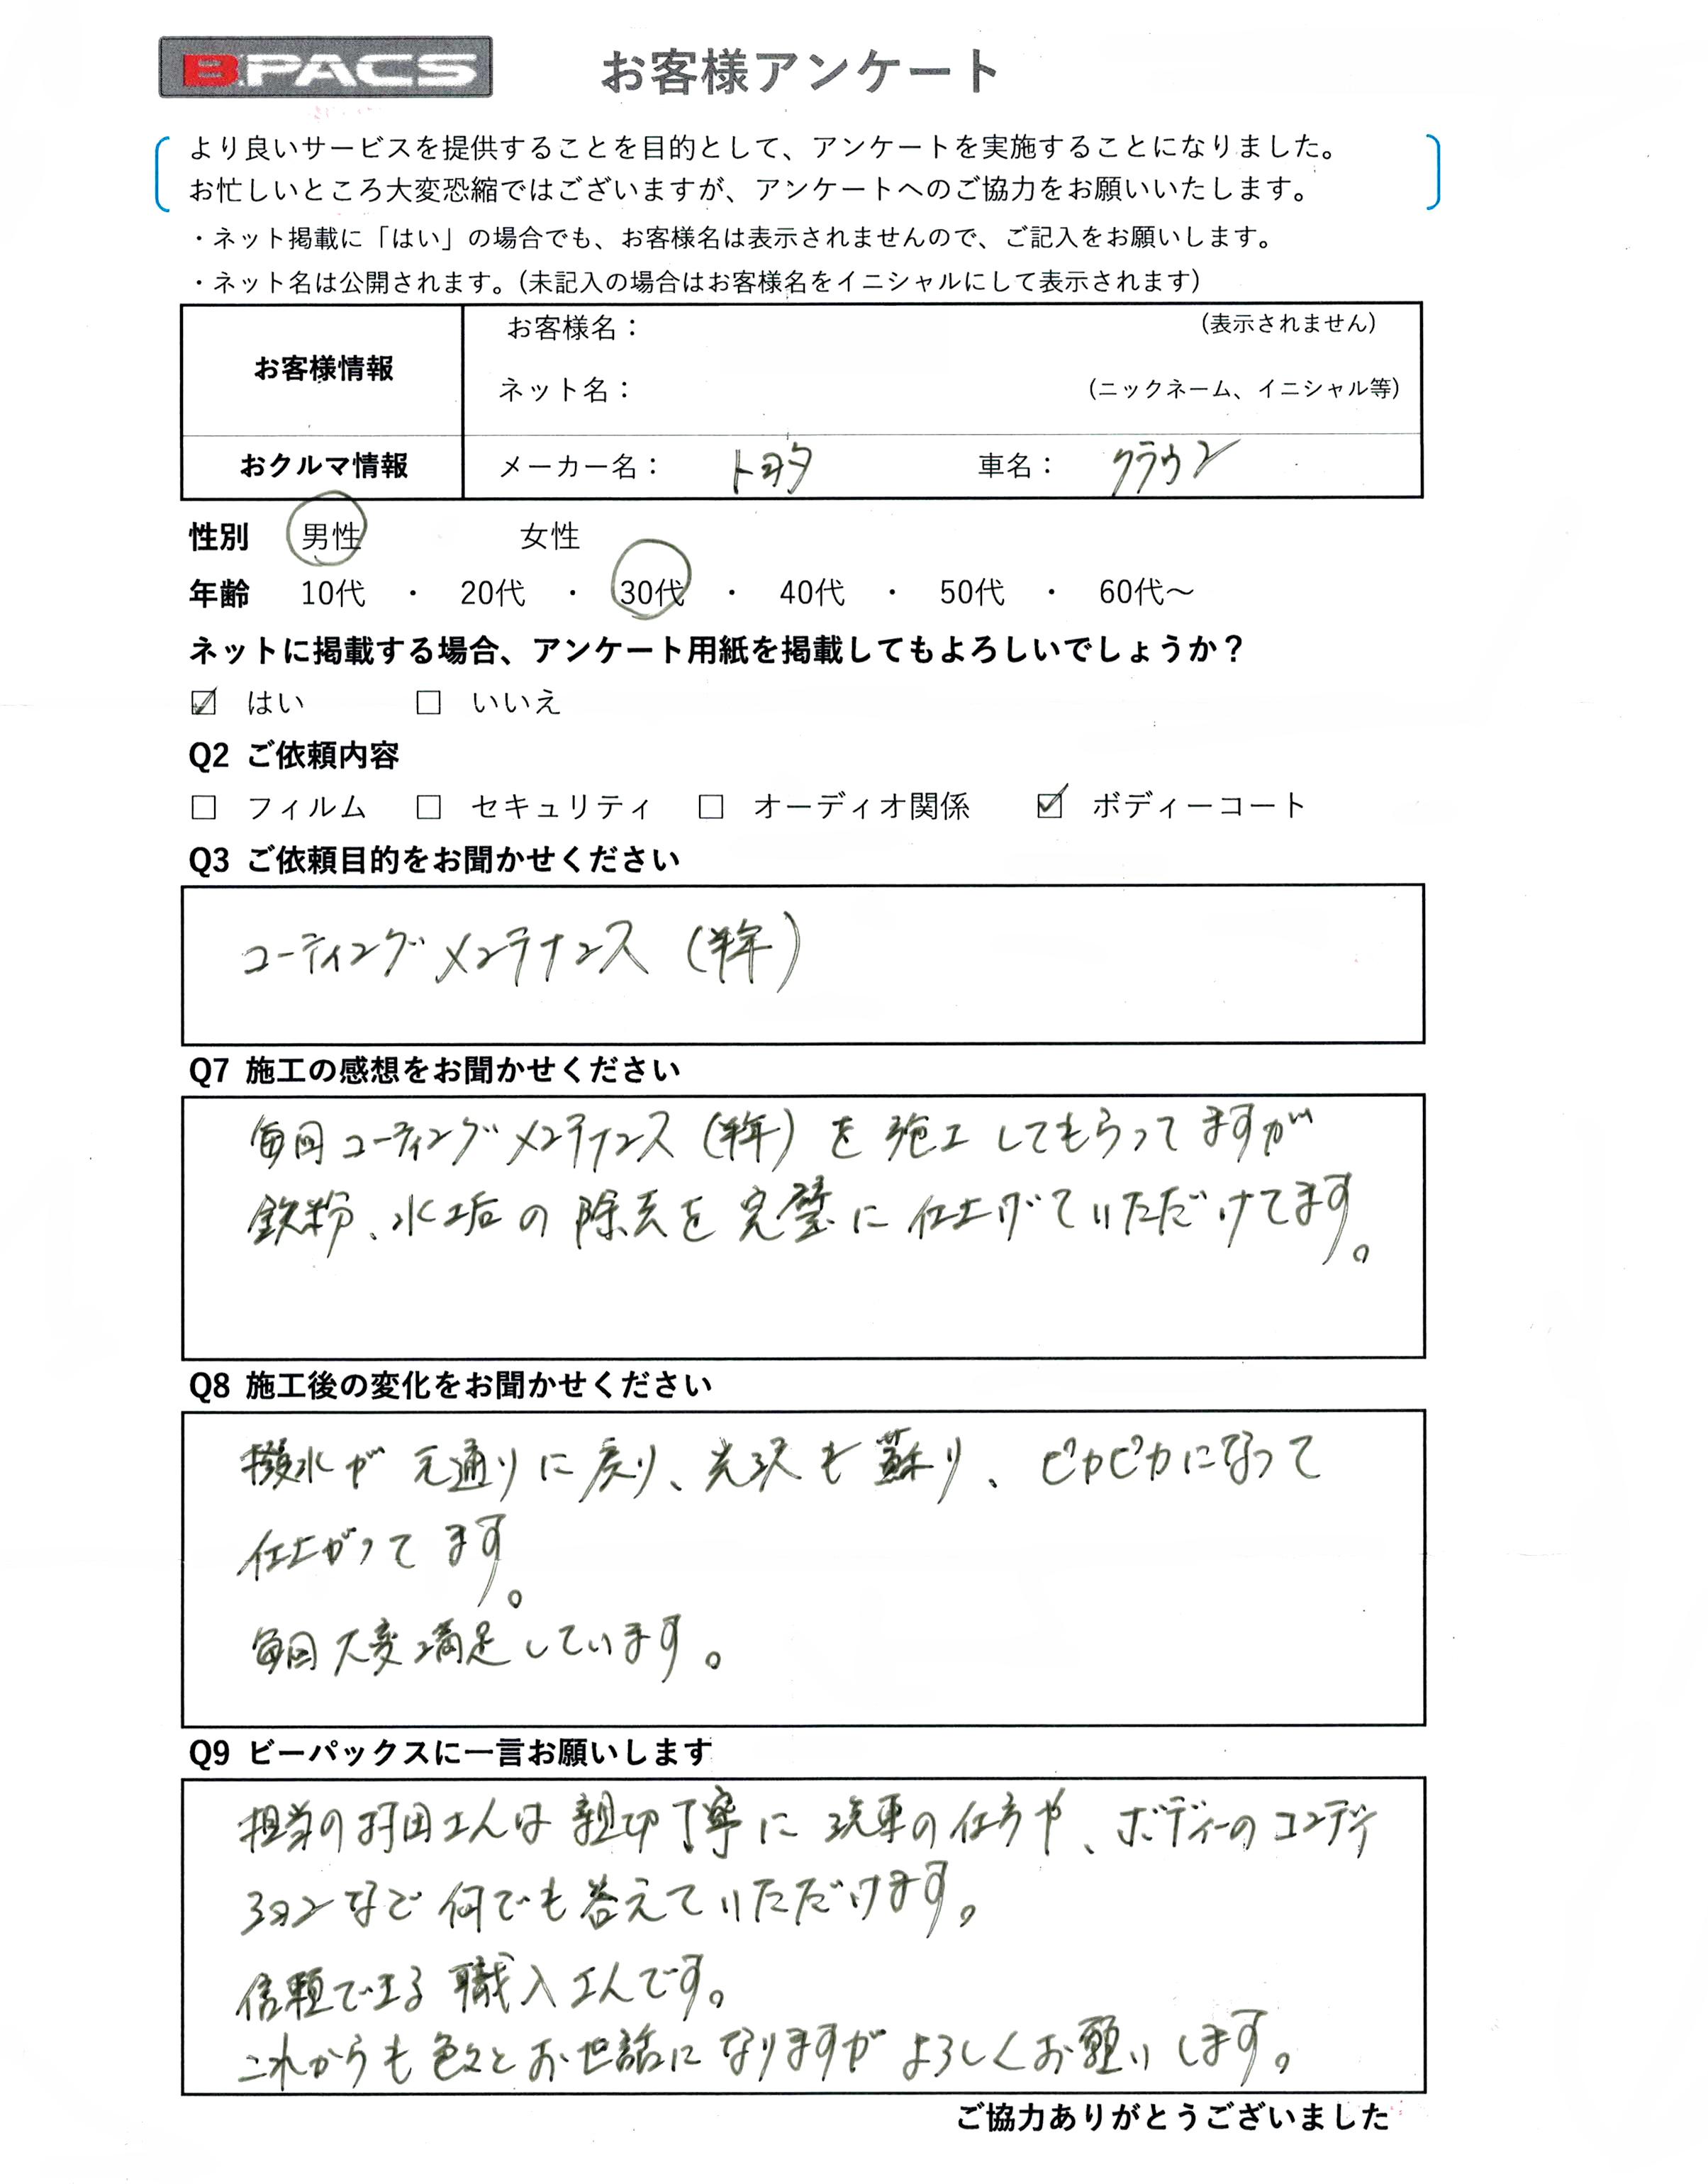 B.PACS お客様アンケート
より良いサービスを提供することを目的として、アンケートを実施することになりました。
お忙しいところ大変恐縮ではございますが、アンケートへのご協力をお願いいたします。
・ネット掲載に「はい」の場合でも、お客様名は表示されませんので、ご記入をお願いします。
・ネット名は公開されます。(未記入の場合はお客様名をイニシャルにして表示されます)
お客様情報
お客様名： (表示されません)
ネット名： (ニックネーム、イニシャル等)
おクルマ情報 メーカー名： トヨタ 車名： クラウン
性別 男性 女性
年齢 10代 ・ 20代 ・ 30代 ・ 40代 ・ 50代 ・ 60代～
ネットに掲載する場合、アンケート用紙を掲載してもよろしいでしょうか？
☑ はい □ いいえ
Q2 ご依頼内容
□ フィルム □ セキュリティ □ オーディオ関係 ☑ ボディーコート
Q3 ご依頼目的をお聞かせください
コーティングメンテナンス (半年)
Q7 施工の感想をお聞かせください
毎回コーティングメンテナンス(半年)を施工してもらってますが
鉄粉、水垢の除去を完璧に仕上げていただけてます。
Q8 施工後の変化をお聞かせください
撥水が元通りに戻り、光沢も蘇り、ピカピカになって
仕上がってます。
毎回大変満足しています。
Q9 ビーパックスに一言お願いします
担当の村田さんは親切丁寧に洗車の仕方や、ボディーのコンディ
ションなど何でも答えていただけます。
信頼できる職人さんです。
これからも色々とお世話になりますがよろしくお願いします。
ご協力ありがとうございました